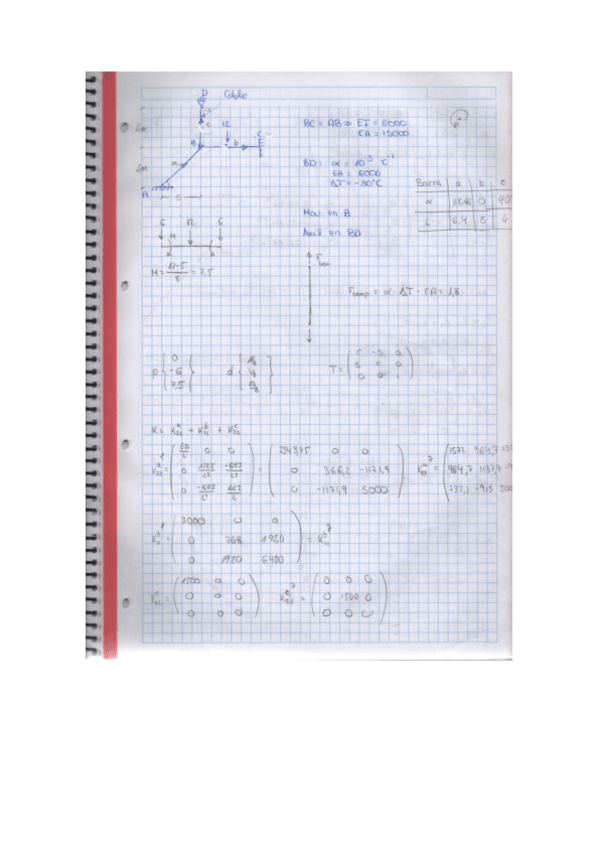 D Cable
4m
c 12
B b C
a
4m
A
5
BC = AB ⇒ EI = 8000
EA = 15000
BD: α = 10⁻⁵ ℃⁻¹
EA = 6000
ΔT = -30℃
Mov en B
Axil en BD
Barra a b c
α 38,66 0 90
L 6,4 5 4
6 12 6
M
M = 12·5/8 = 7,5
F_tem
F_temp = α · ΔT · EA = 1,8
p { 0 -6 7,5 } d { u_B v_B θ_B } T = ( c -s 0 s c 0 0 0 1 )
K = K₂₂ᵃ + K₁₁ᵇ + K₂₂ᶜ
K₂₂ᵃ = ( EA/L 0 0 0 12EI/L³ -6EI/L² 0 -6EI/L² 4EI/L ) = ( 2343,75 0 0 0 366,2 -1171,9 0 -1171,9 5000 )
964,7 1137,9
732,1 -915
K₁₁ᵇ = ( 3000 0 0 0 768 1920 0 1920 6400 ) = K₁₁ᵇ
K₂₂ᶜ = ( 1500 0 0 0 0 0 0 0 0 ) K₂₂ᶜ = ( 0 0 0 0 1500 0 0 0 0 )